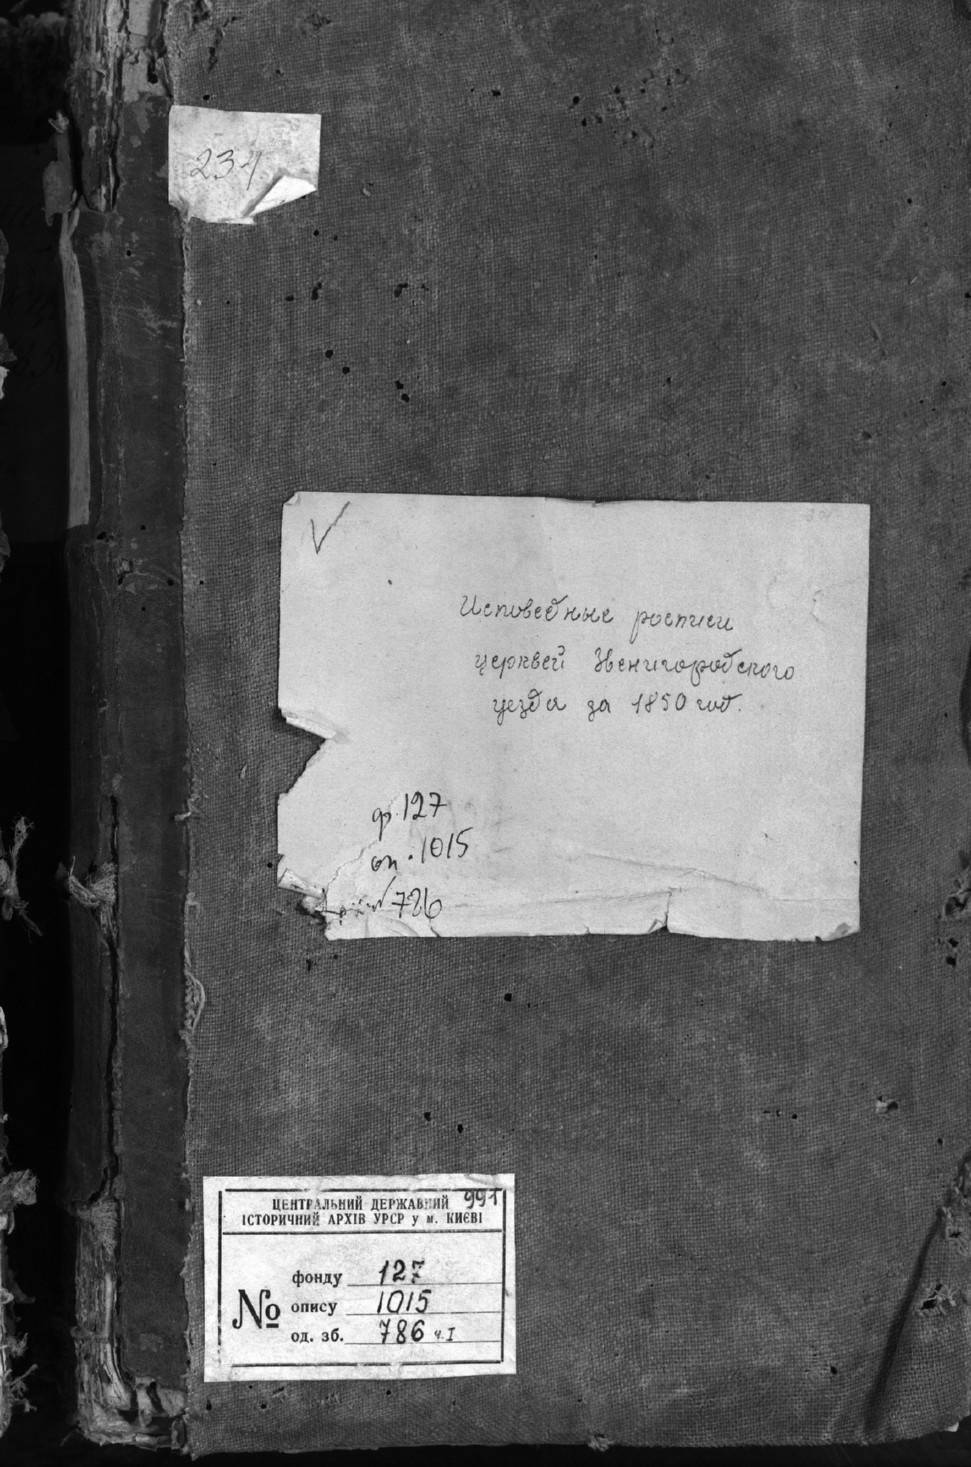 234
V
Исповедные росписи
церквей Звенигородского
уезда за 1850 год.
ф. 127
оп. 1015
786
991
ЦЕНТРАЛЬНИЙ ДЕРЖАВНИЙ
ІСТОРИЧНИЙ АРХІВ УРСР у м. КИЄВІ
№
фонду 127
опису 1015
од. зб. 786 ч. I